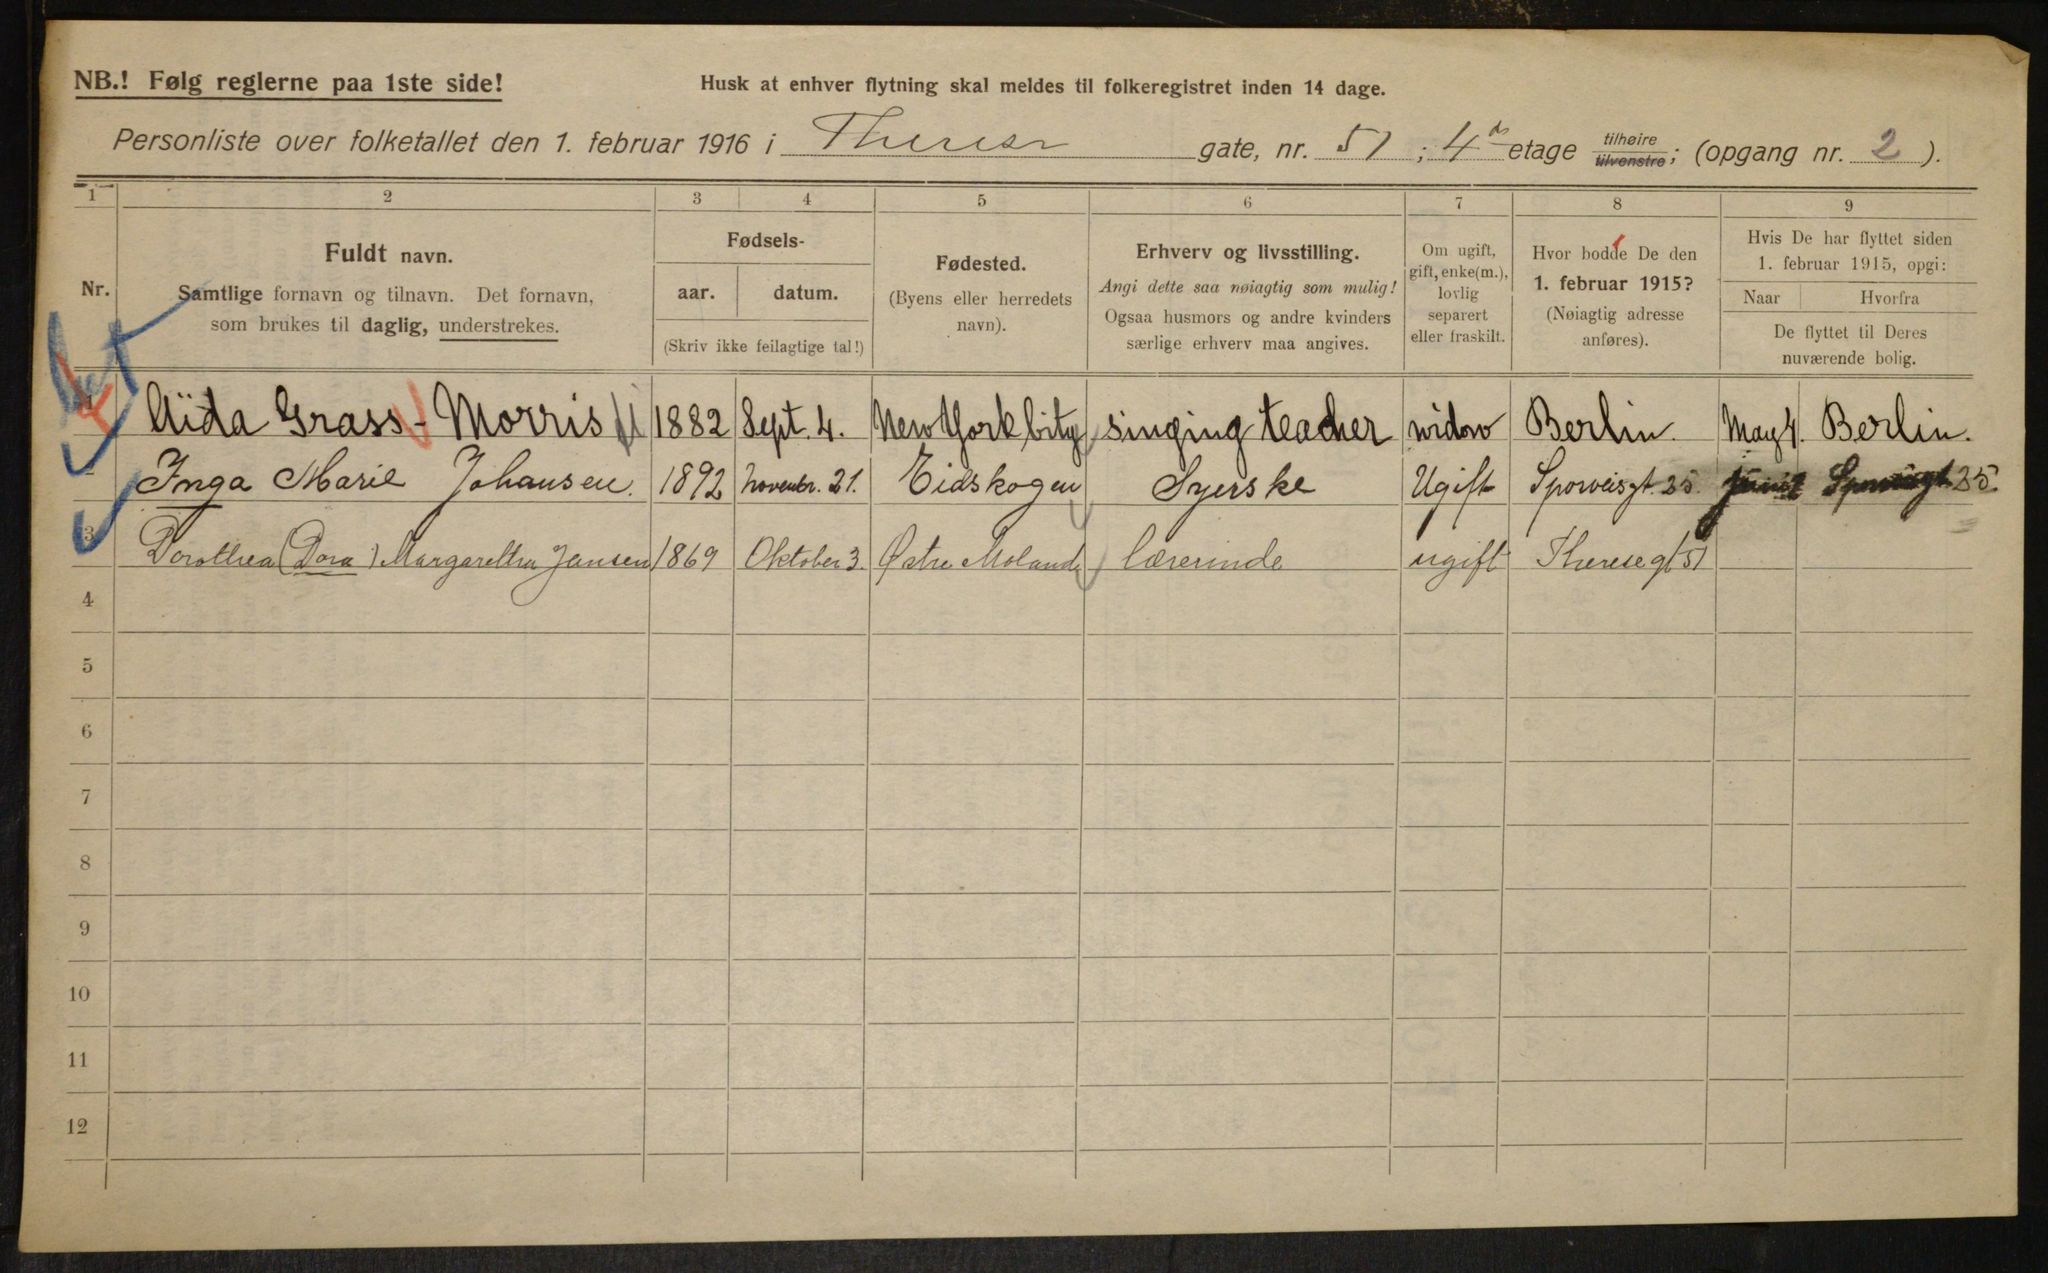 NB.! Følg reglerne paa 1ste side! Husk at enhver flytning skal meldes til folkeregistret inden 14 dage.
Personliste over folketallet den 1. februar 1916 i Therese gate, nr. 51 ; 4de etage tilhøire tilvenstre ; (opgang nr. 2 ).
1 2 3 4 5 6 7 8 9
Nr.
Fuldt navn.
Samtlige fornavn og tilnavn. Det fornavn,
som brukes til daglig, understrekes.
Fødsels-
aar. datum.
(Skriv ikke feilagtige tal!)
Fødested.
(Byens eller herredets
navn).
Erhverv og livsstilling.
Angi dette saa nøiagtig som mulig!
Ogsaa husmors og andre kvinders
særlige erhverv maa angives.
Om ugift,
gift, enke(m.),
lovlig
separert
eller fraskilt.
Hvor bodde De den
1. februar 1915?
(Nøiagtig adresse
anføres).
Hvis De har flyttet siden
1. februar 1915, opgi:
Naar Hvorfra
De flyttet til Deres
nuværende bolig.
1 Aïda Grass-Morris 1882 Sept. 4. New York City singing teacher widow Berlin. May 4. Berlin.
2 Inga Marie Johansen. 1892 Novembr. 21. Eidskogen Syerske Ugift Sporveisgt. 25. Sporveisgt. 25.
3 Dorothea (Dora) Margarethe Jansen 1869 Oktober 3. Østre Moland lærerinde ugift Therese gt 51
4
5
6
7
8
9
10
11
12